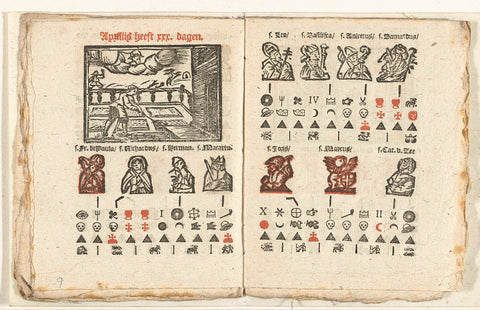 Apzillis heeft xxx. dagen.
s. Fr. de Paula/ s. Richardus/ s. Herman. s. Macarius
I
9
s. Leo/ s. Basilissa/ s. Anicetus/ s. Bernardus/
IV
s. Joris/ s. Marcus/ s. Cat. v. See
X